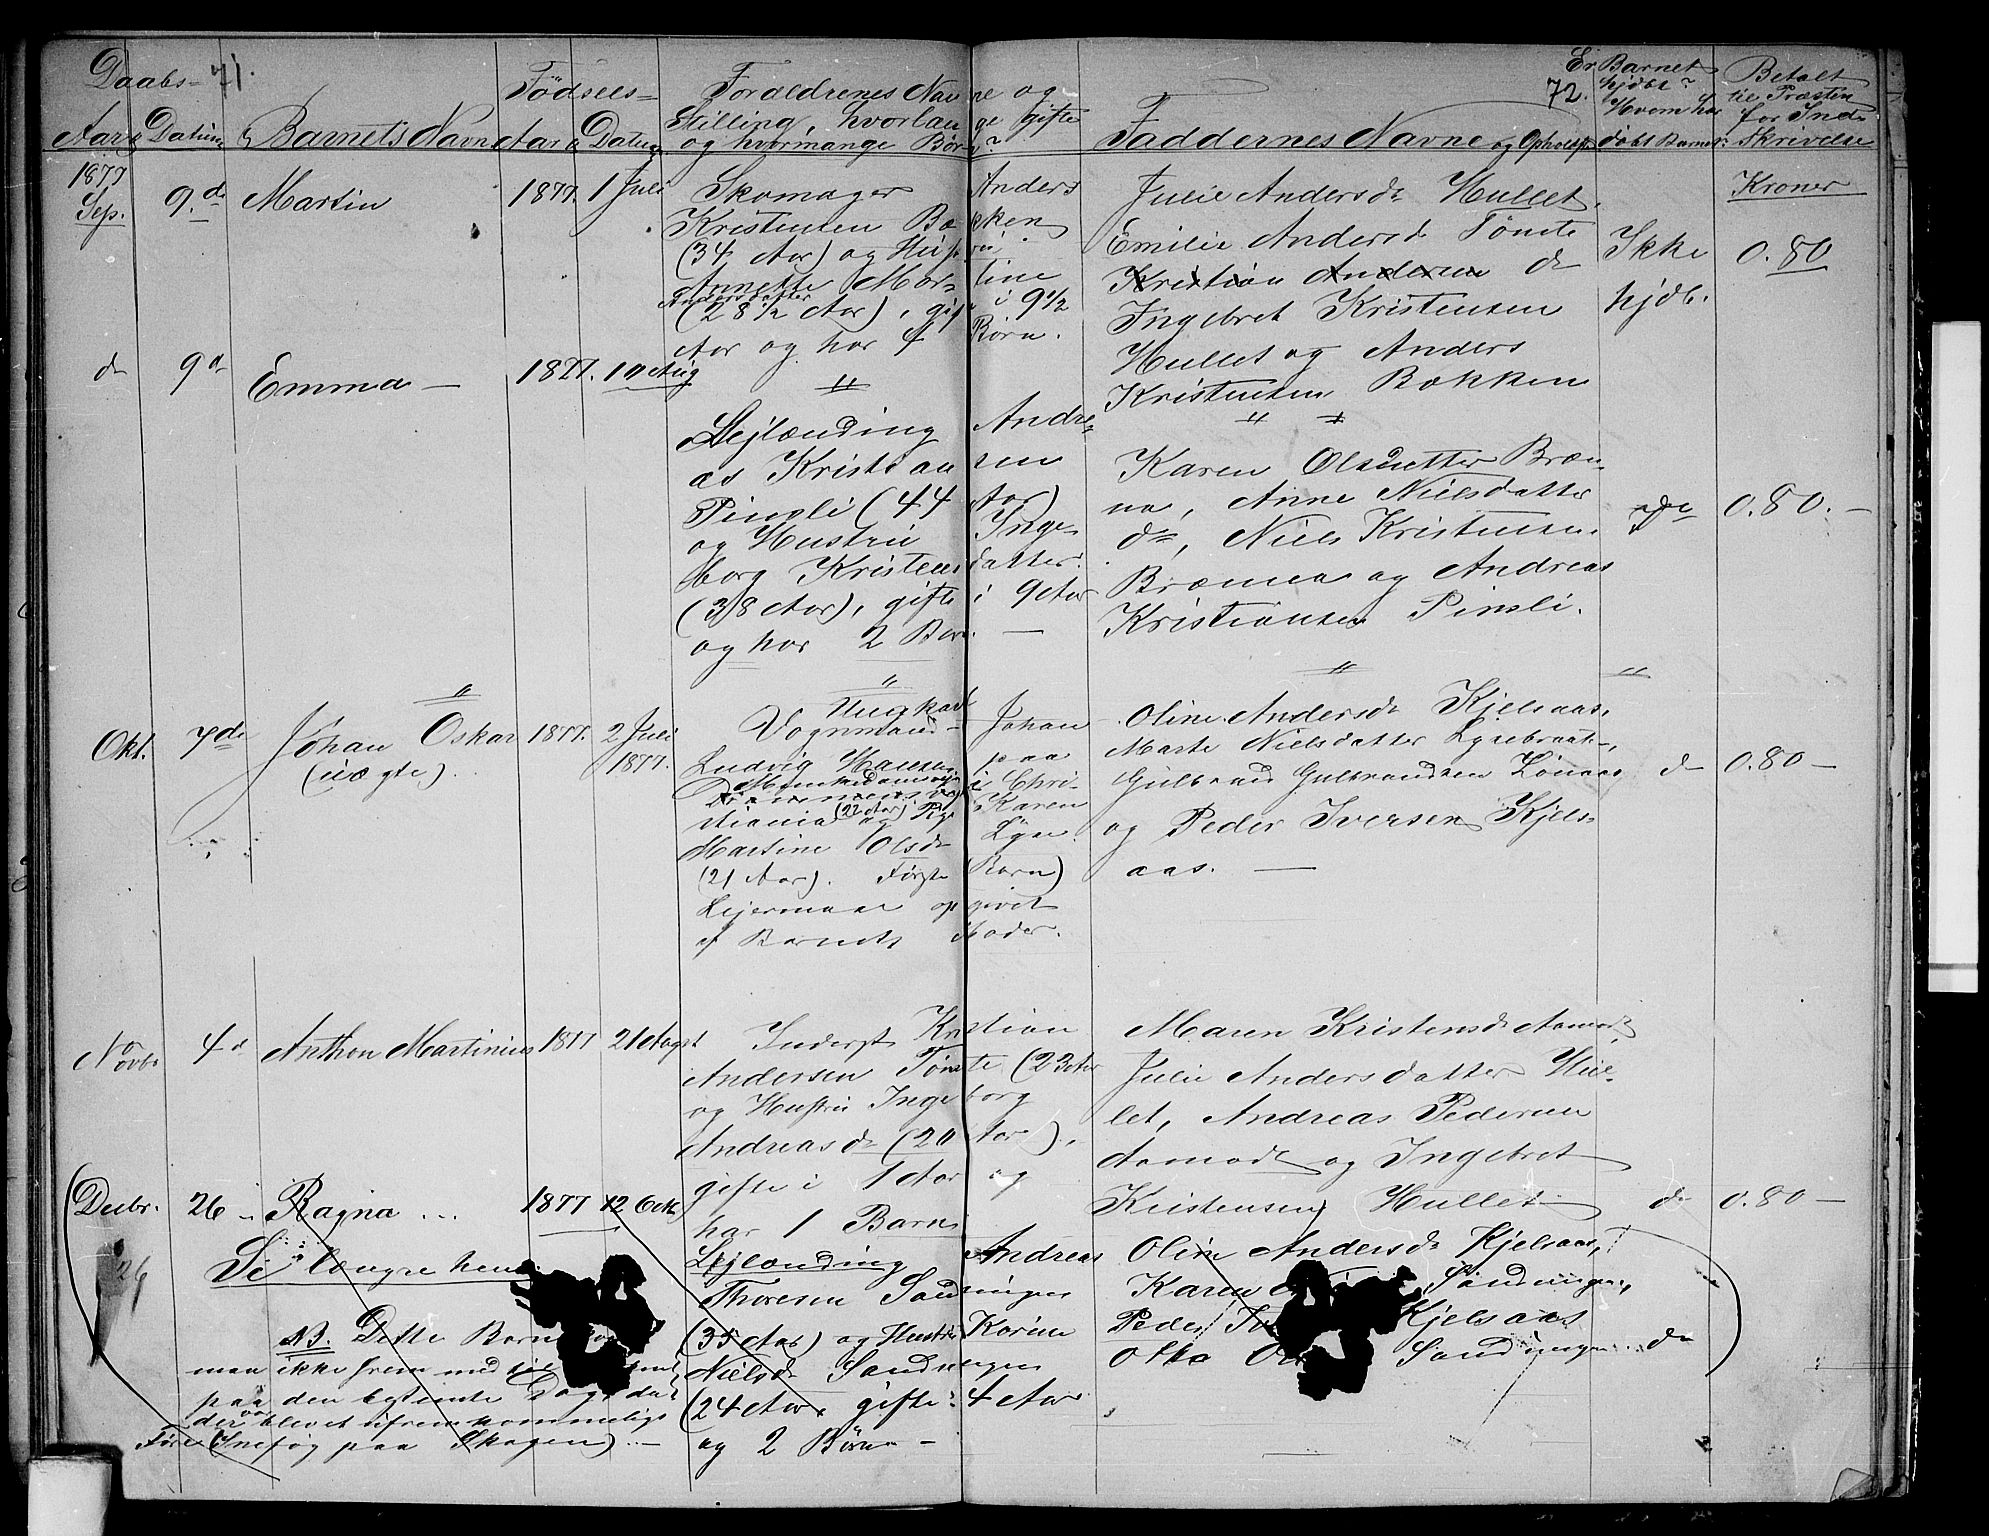 71.
72.
Daabs=
Aar Datum
Barnets Navn
Fødsels=
Aar Datum
Forældrenes Navne og
Stilling, hvorlænge gifte
og hvormange Børn?
Faddernes Navne og Opholdss.
Er Barnet
hjdbt?
Hvem har
døbt Barnet
Betalt
til Præsten
for Ind=
skrivelse
Kroner
1877
Sep. 9.de Martin 1877. 1 Juli
Skomager Anders
Kristensen Bækken
(34 Aar) og Hustru
Annette Martine
Andersdatter
(28 1/2 Aar), gifte i 9 1/2
Aar og har 4 Børn.
Julie Andersd. Hullet,
Emilie Andersd. Tømte
Kristian Andersen do
Ingebret Kristensen
Hullet og Anders
Kristensen Bækken
Ikke
hjdb.
0.80
do 9d Emma — 1877. 10 Aug
Lejlænding Andre=
as Kristiansen
Pinsli (44 Aar)
og Hustru Inge=
borg Kristensdatter
(38 Aar), gifte i 9 Aar
og har 2 Børn. —
Karen Olsdatter Bræn=
na, Anne Nielsdatter
do, Niels Kristensen
Brænna og Andreas
Kristiansen Pinsli.
do 0.80. —
Okt. 7de Johan Oskar 1877. 2 Juli
(uægte). 1877.
Ungkarl
Vognmand — Johan
Ludvig Hansen paa
Munkedamsvejen
i Chri=
stiania (22 Aar) og Pige Karen
Martine Olsd.
(21 Aar). Første (Barn)
Lejermaal opgivet
af Barnets Moder.
Oline Andersd. Kjelsaas,
Marte Nielsdatter
Gulbrand Gulbrandsen
og Peder Iversen Kjels=
aas. —
do 0.80 —
Novbr 4d Anthon Martinius 1877 21 Augst
Inderst Kristian
Andersen Tømte (23 Aar
og Hustru Ingeborg
Andreasd. (20 Aar),
gifte i 1 Aar og
har 1 Barn
Maren Kristensd. Aamodt,
Julie Andersdatter Hul=
let, Andreas Pedersen
Aamodt og Ingebret
Kristensen Hullet
do 0.80 —
(Decbr. 26 Ragna 1877 12 Okt.
26
Se længre hen
Lejlænding Andreas
Thoresen Sandungen
(35 Aar) og Hustru Karine
Nielsd. Sandungen
(24 Aar, gifte i 4 Aar
og 2 Børn —
Oline Andersd. Kjelsaas,
Karen Sandungen,
Peder Kjelsaas
Otto Sandungen
do
NB. Dette Barn
man ikke frem med
paa den bestemte Dag, da
der var blevet ufremkommeligt
Føre (Snefog paa Skogen). —